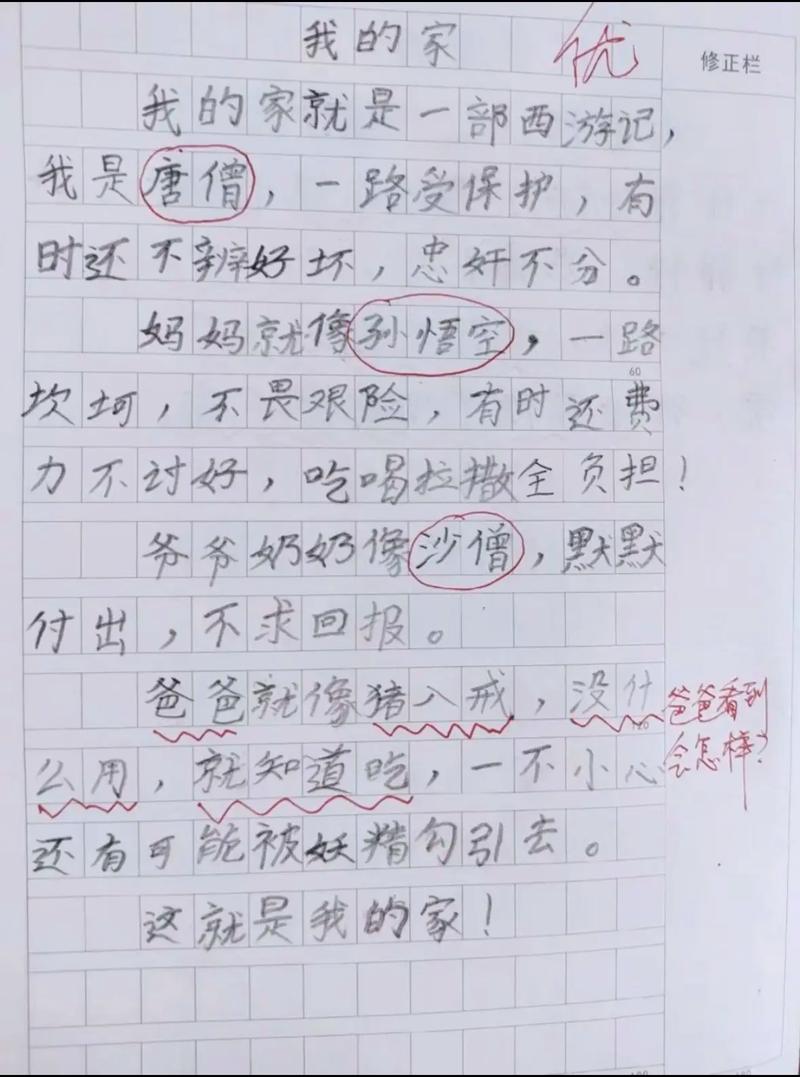 我的家
优
修正栏
我的家就是一部西游记，
我是唐僧，一路受保护，有
时还不辨好坏，忠奸不分。
妈妈就像孙悟空，一路
60
坎坷，不畏艰险，有时还费
力不讨好，吃喝拉撒全负担！
爷爷奶奶像沙僧，默默
付出，不求回报。
爸爸就像猪八戒，没什
120
么用，就知道吃，一不小心
还有可能被妖精勾引去。
这就是我的家！
爸爸看到
会怎样？